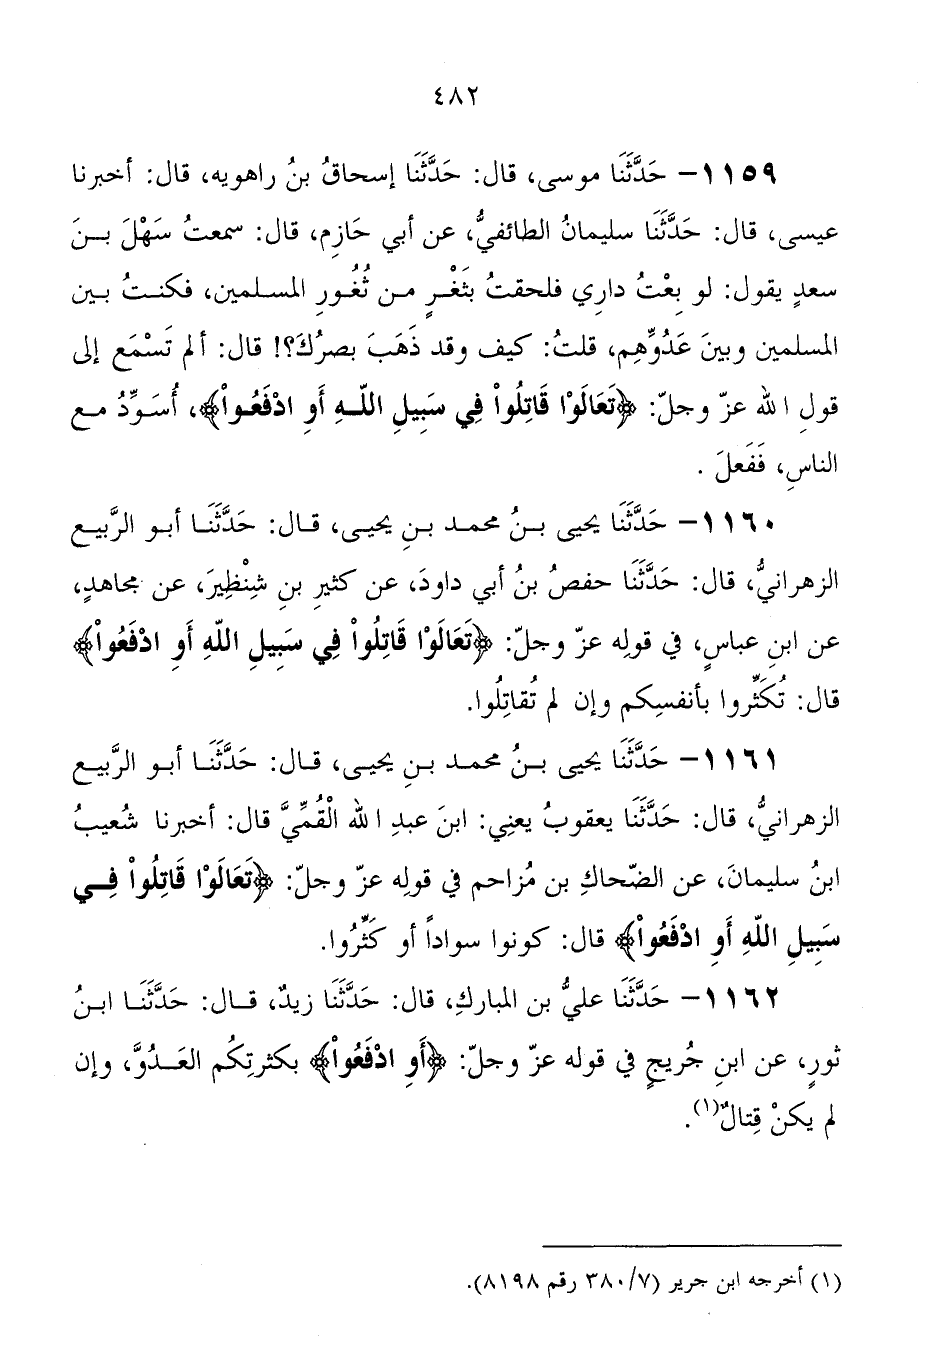 ٤٨٢
١١٥٩ – حَدَّثَنَا موسى، قال: حَدَّثَنَا إسحاقُ بنُ راهويه، قال: أخبرنا
عيسى، قال: حَدَّثَنَا سليمانُ الطائفيُّ، عن أبي حَازِم، قال: سمعتُ سَهْلَ بـنَ
سعدٍ يقول: لو بِعْتُ داري فلحقتُ بثَغْرٍ مـن ثُغُورِ المسـلمين، فكنـتُ بـين
المسلمين وبينَ عَدُوِّهِم، قلتُ: كيف وقد ذَهَبَ بصرُكَ؟! قال: ألم تَسْمَع إلى
قولِ الله عزّ وجلّ: ﴿تَعَالَوْا قَاتِلُواْ فِي سَبِيلِ اللّـهِ أَوِ ادْفَعُـواْ﴾، أُسَـوِّدُ مـع
الناسِ، فَفَعلَ .
١١٦٠ – حَدَّثَنَا يحيى بـنُ محمـد بـنِ يحيـى، قـال: حَدَّثَنَـا أبـو الرَّبيـع
الزهرانيُّ، قال: حَدَّثَنَا حفصُ بنُ أبي داودَ، عن كثيرِ بنِ شِنْظِيرَ، عن مجاهدٍ،
عن ابنِ عباسٍ، في قولِه عزّ وجلّ: ﴿تَعَالَوْا قَاتِلُواْ فِي سَبِيلِ اللّهِ أَوِ ادْفَعُواْ﴾
قال: تُكَثِّروا بأنفسِكم وإن لم تُقاتِلُوا.
١١٦١ – حَدَّثَنَا يحيى بـنُ محمـد بـنِ يحيـى، قـال: حَدَّثَنَـا أبـو الرَّبيـع
الزهرانيُّ، قال: حَدَّثَنَا يعقوبُ يعنِي: ابنَ عبدِ الله الْقُمِّيَّ قال: أخبرنا شعيبُ
ابنُ سليمانَ، عن الضّحاكِ بن مُزاحم في قولِه عزّ وجلّ: ﴿تَعَالَوْا قَاتِلُواْ فِـي
سَبِيلِ اللّهِ أَوِ ادْفَعُواْ﴾ قال: كونوا سواداً أو كَثِّرُوا.
١١٦٢ – حَدَّثَنَا عليُّ بن المباركِ، قال: حَدَّثَنَا زيدٌ، قـال: حَدَّثَنَـا ابـنُ
ثورٍ، عن ابنِ جُريجٍ في قوله عزّ وجلّ: ﴿أَوِ ادْفَعُواْ﴾ بكثرتِكُم العَـدُوَّ، وإن
لم يكنْ قِتالٌ(١).
(١) أخرجه ابن جرير (٣٨٠/٧ رقم ٨١٩٨).